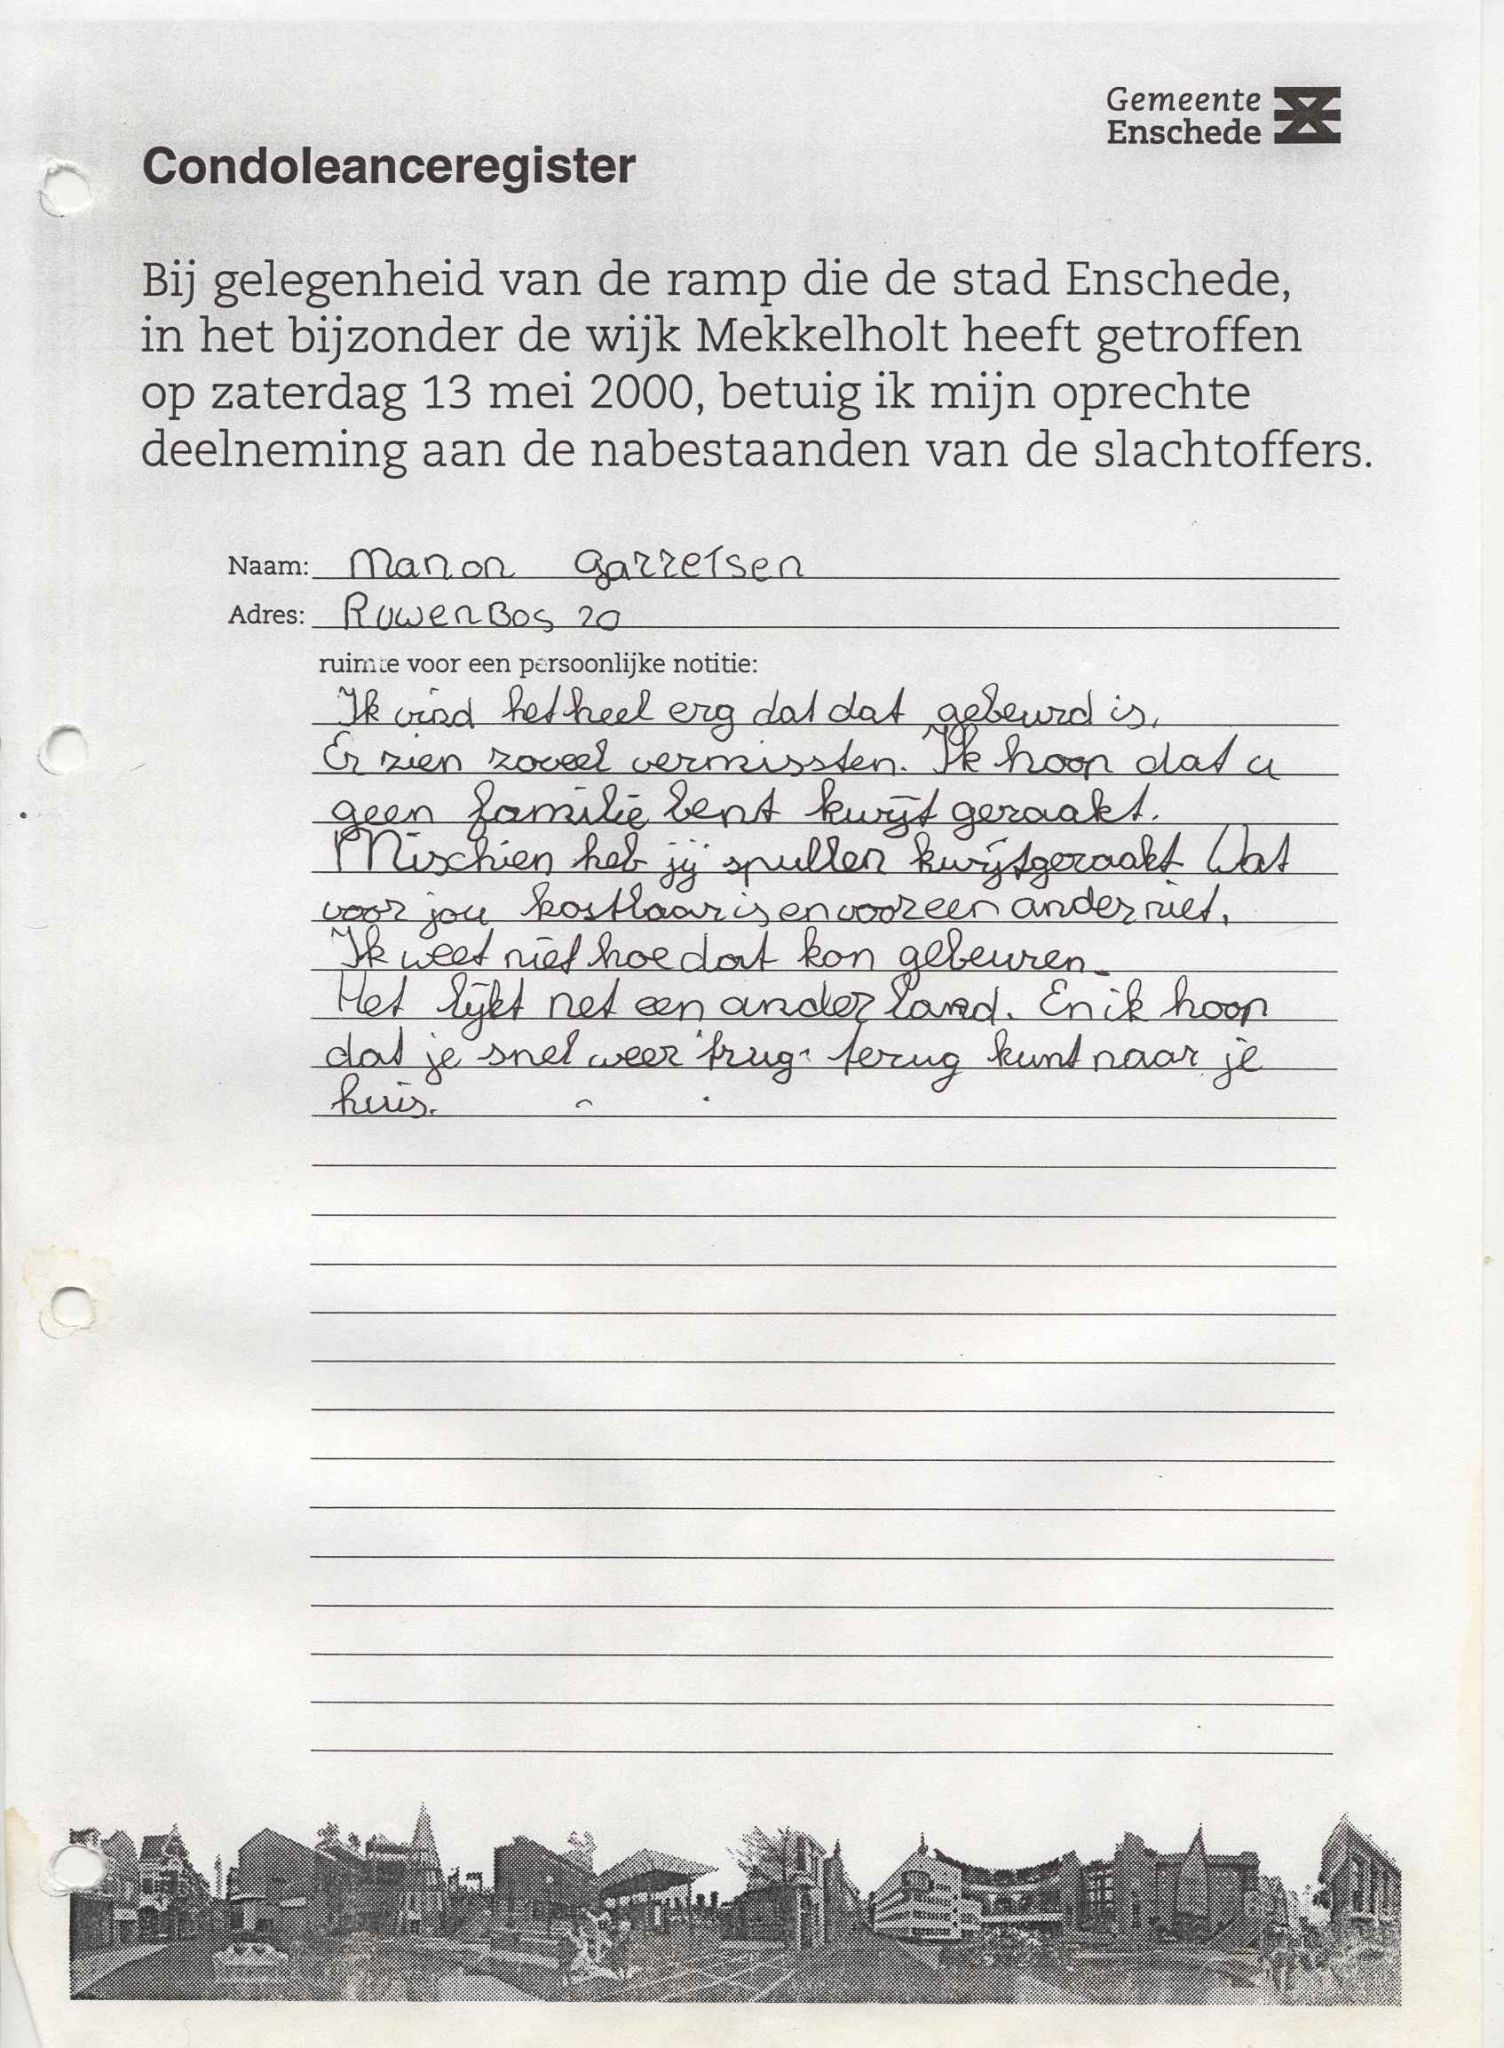 Gemeente
Enschede
Condoleanceregister
Bij gelegenheid van de ramp die de stad Enschede,
in het bijzonder de wijk Mekkelholt heeft getroffen
op zaterdag 13 mei 2000, betuig ik mijn oprechte
deelneming aan de nabestaanden van de slachtoffers.
Naam: Manon Garretsen
Adres: RuwenBos 20
ruimte voor een persoonlijke notitie:
Ik vind het heel erg dat dat gebeurd is.
Er zien zoveel vermissten. Ik hoop dat u
geen familie bent kwijt geraakt.
Mischien heb jij spullen kwijtgeraakt Wat
voor jou kostbaar is en voor een ander niet.
Ik weet niet hoe dat kon gebeuren.
Het lijkt net een ander land. En ik hoop
dat je snel weer "trug" terug kunt naar je
huis.